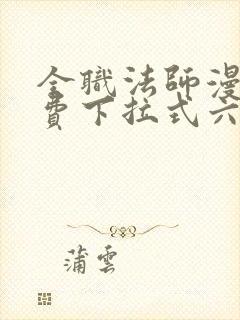 全職法師漫
費下拉式六
蒲雲